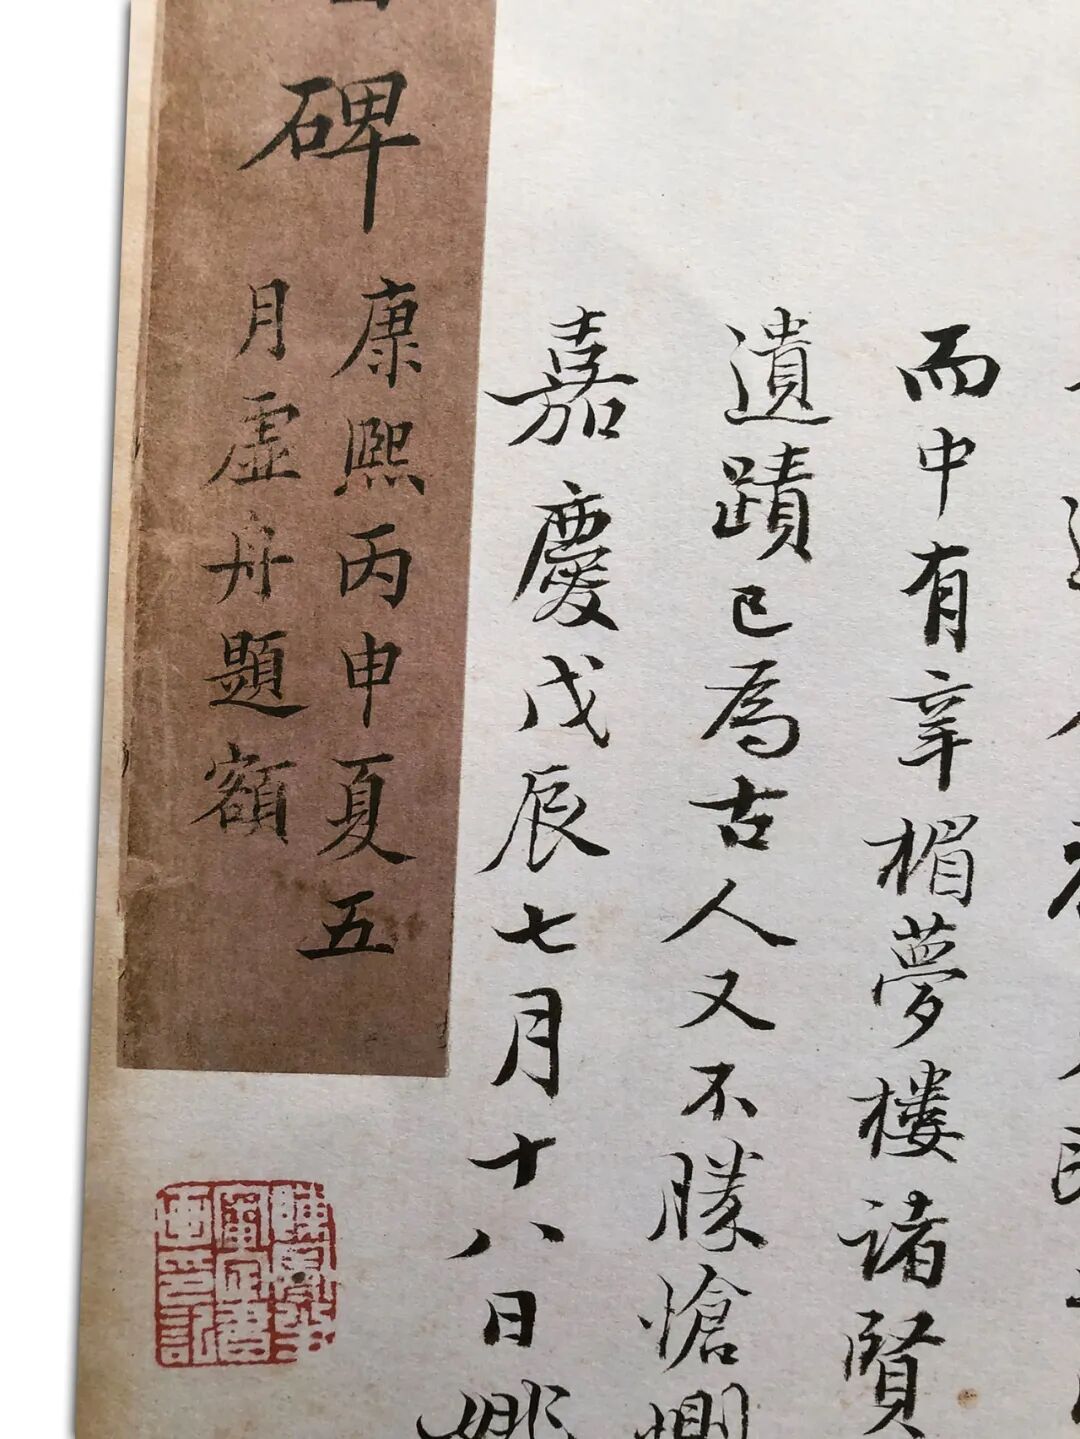 而中有辛楣夢樓诸賢
遺蹟已為古人又不勝愴惻
嘉慶戊辰七月十八日姚
碑
康熙丙申夏五
月虛舟題額